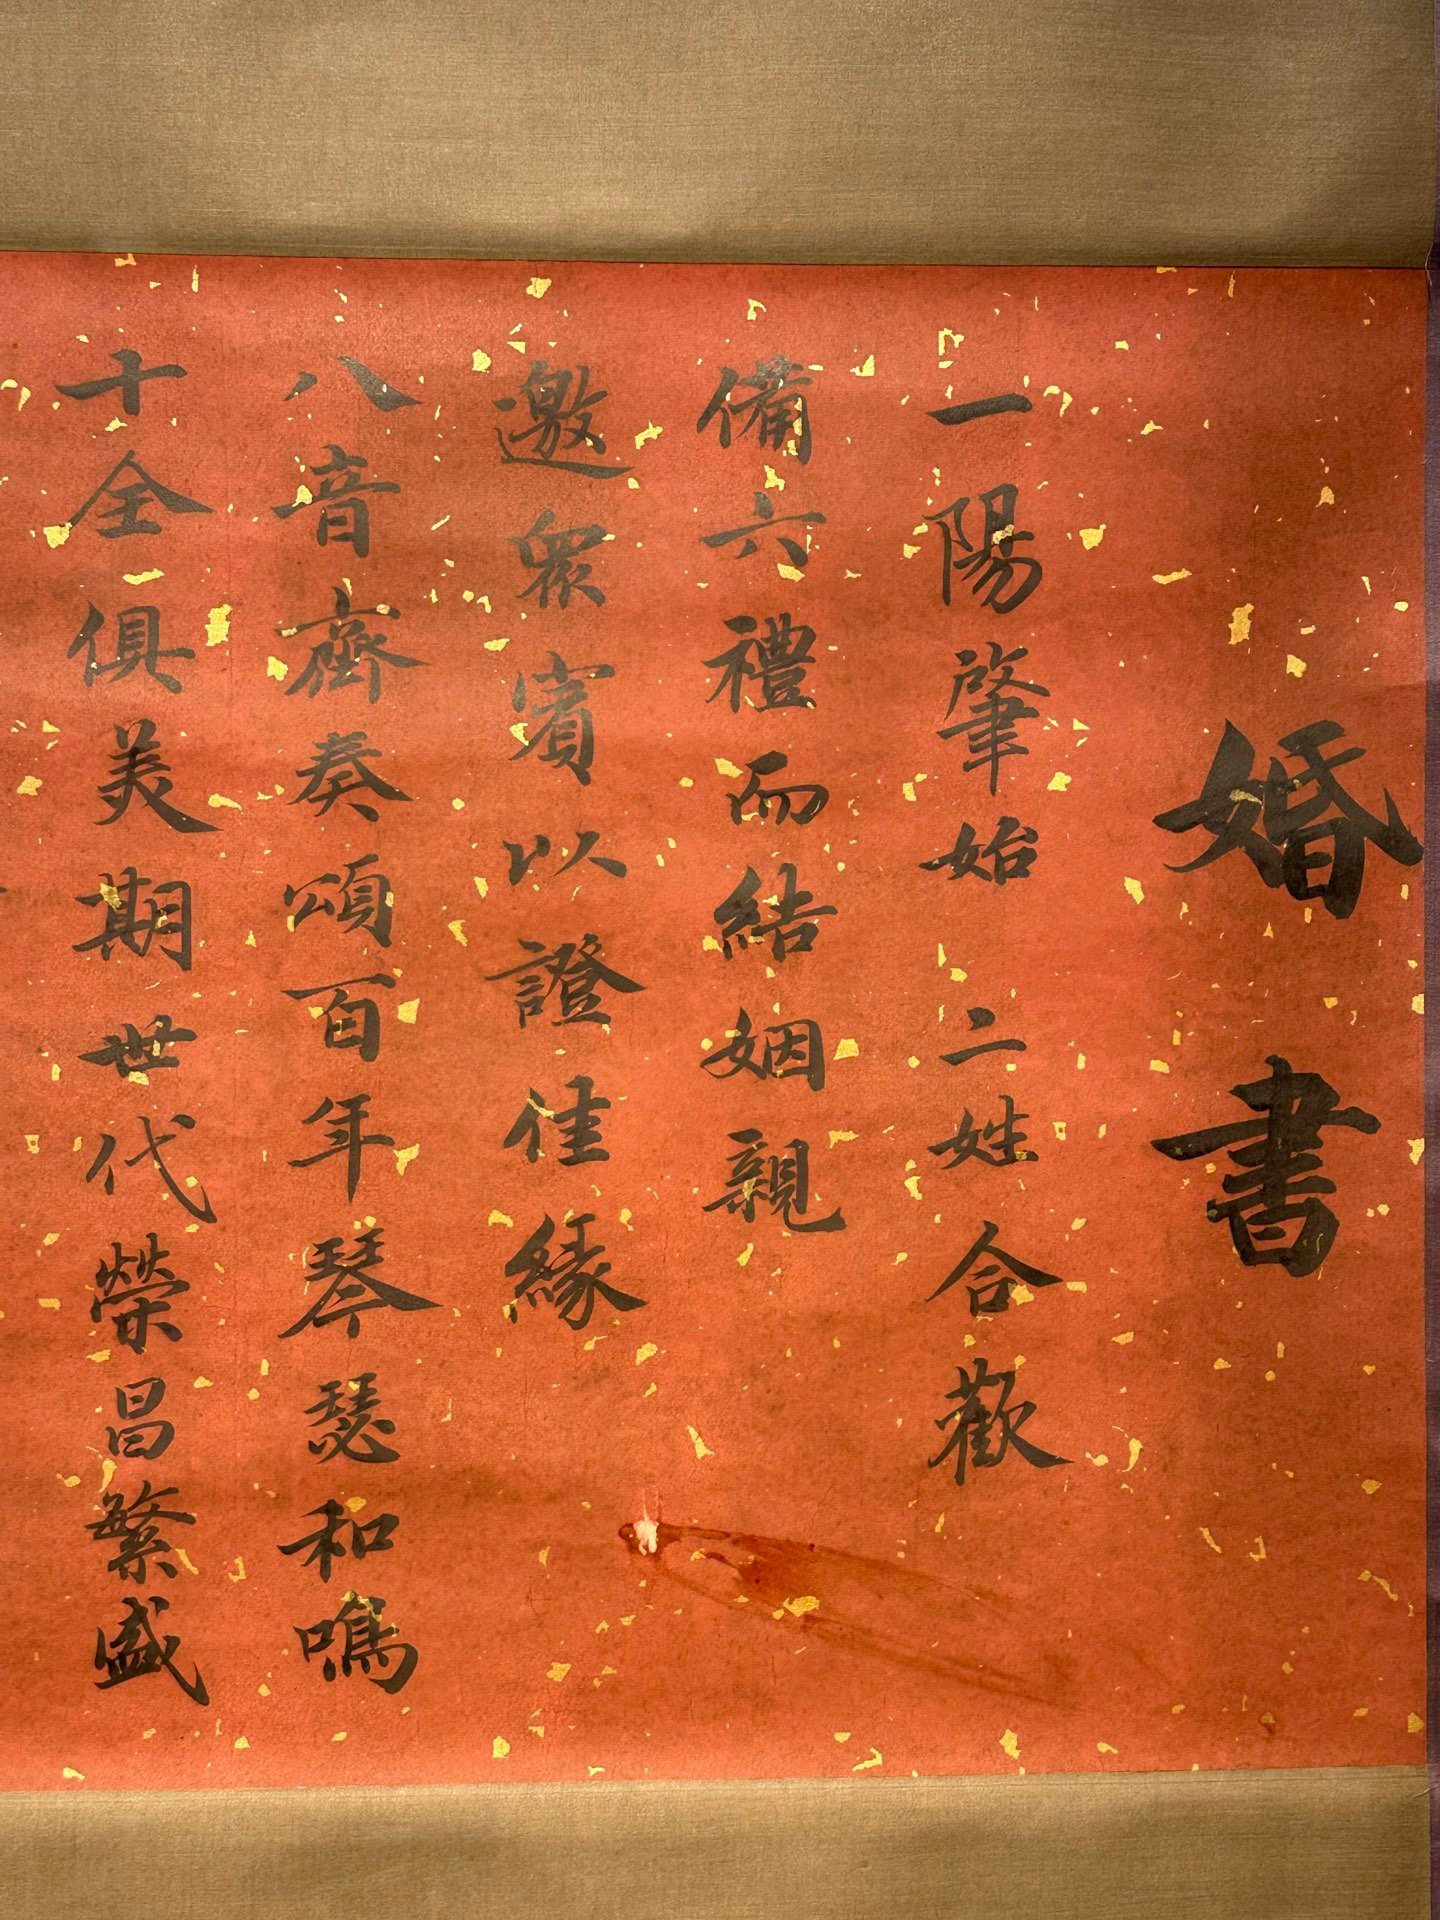 婚書
一陽肇始 二姓合歡
備六禮而結姻親
邀眾賓以證佳緣
八音齊奏頌百年琴瑟和鳴
十全俱美期世代榮昌繁盛